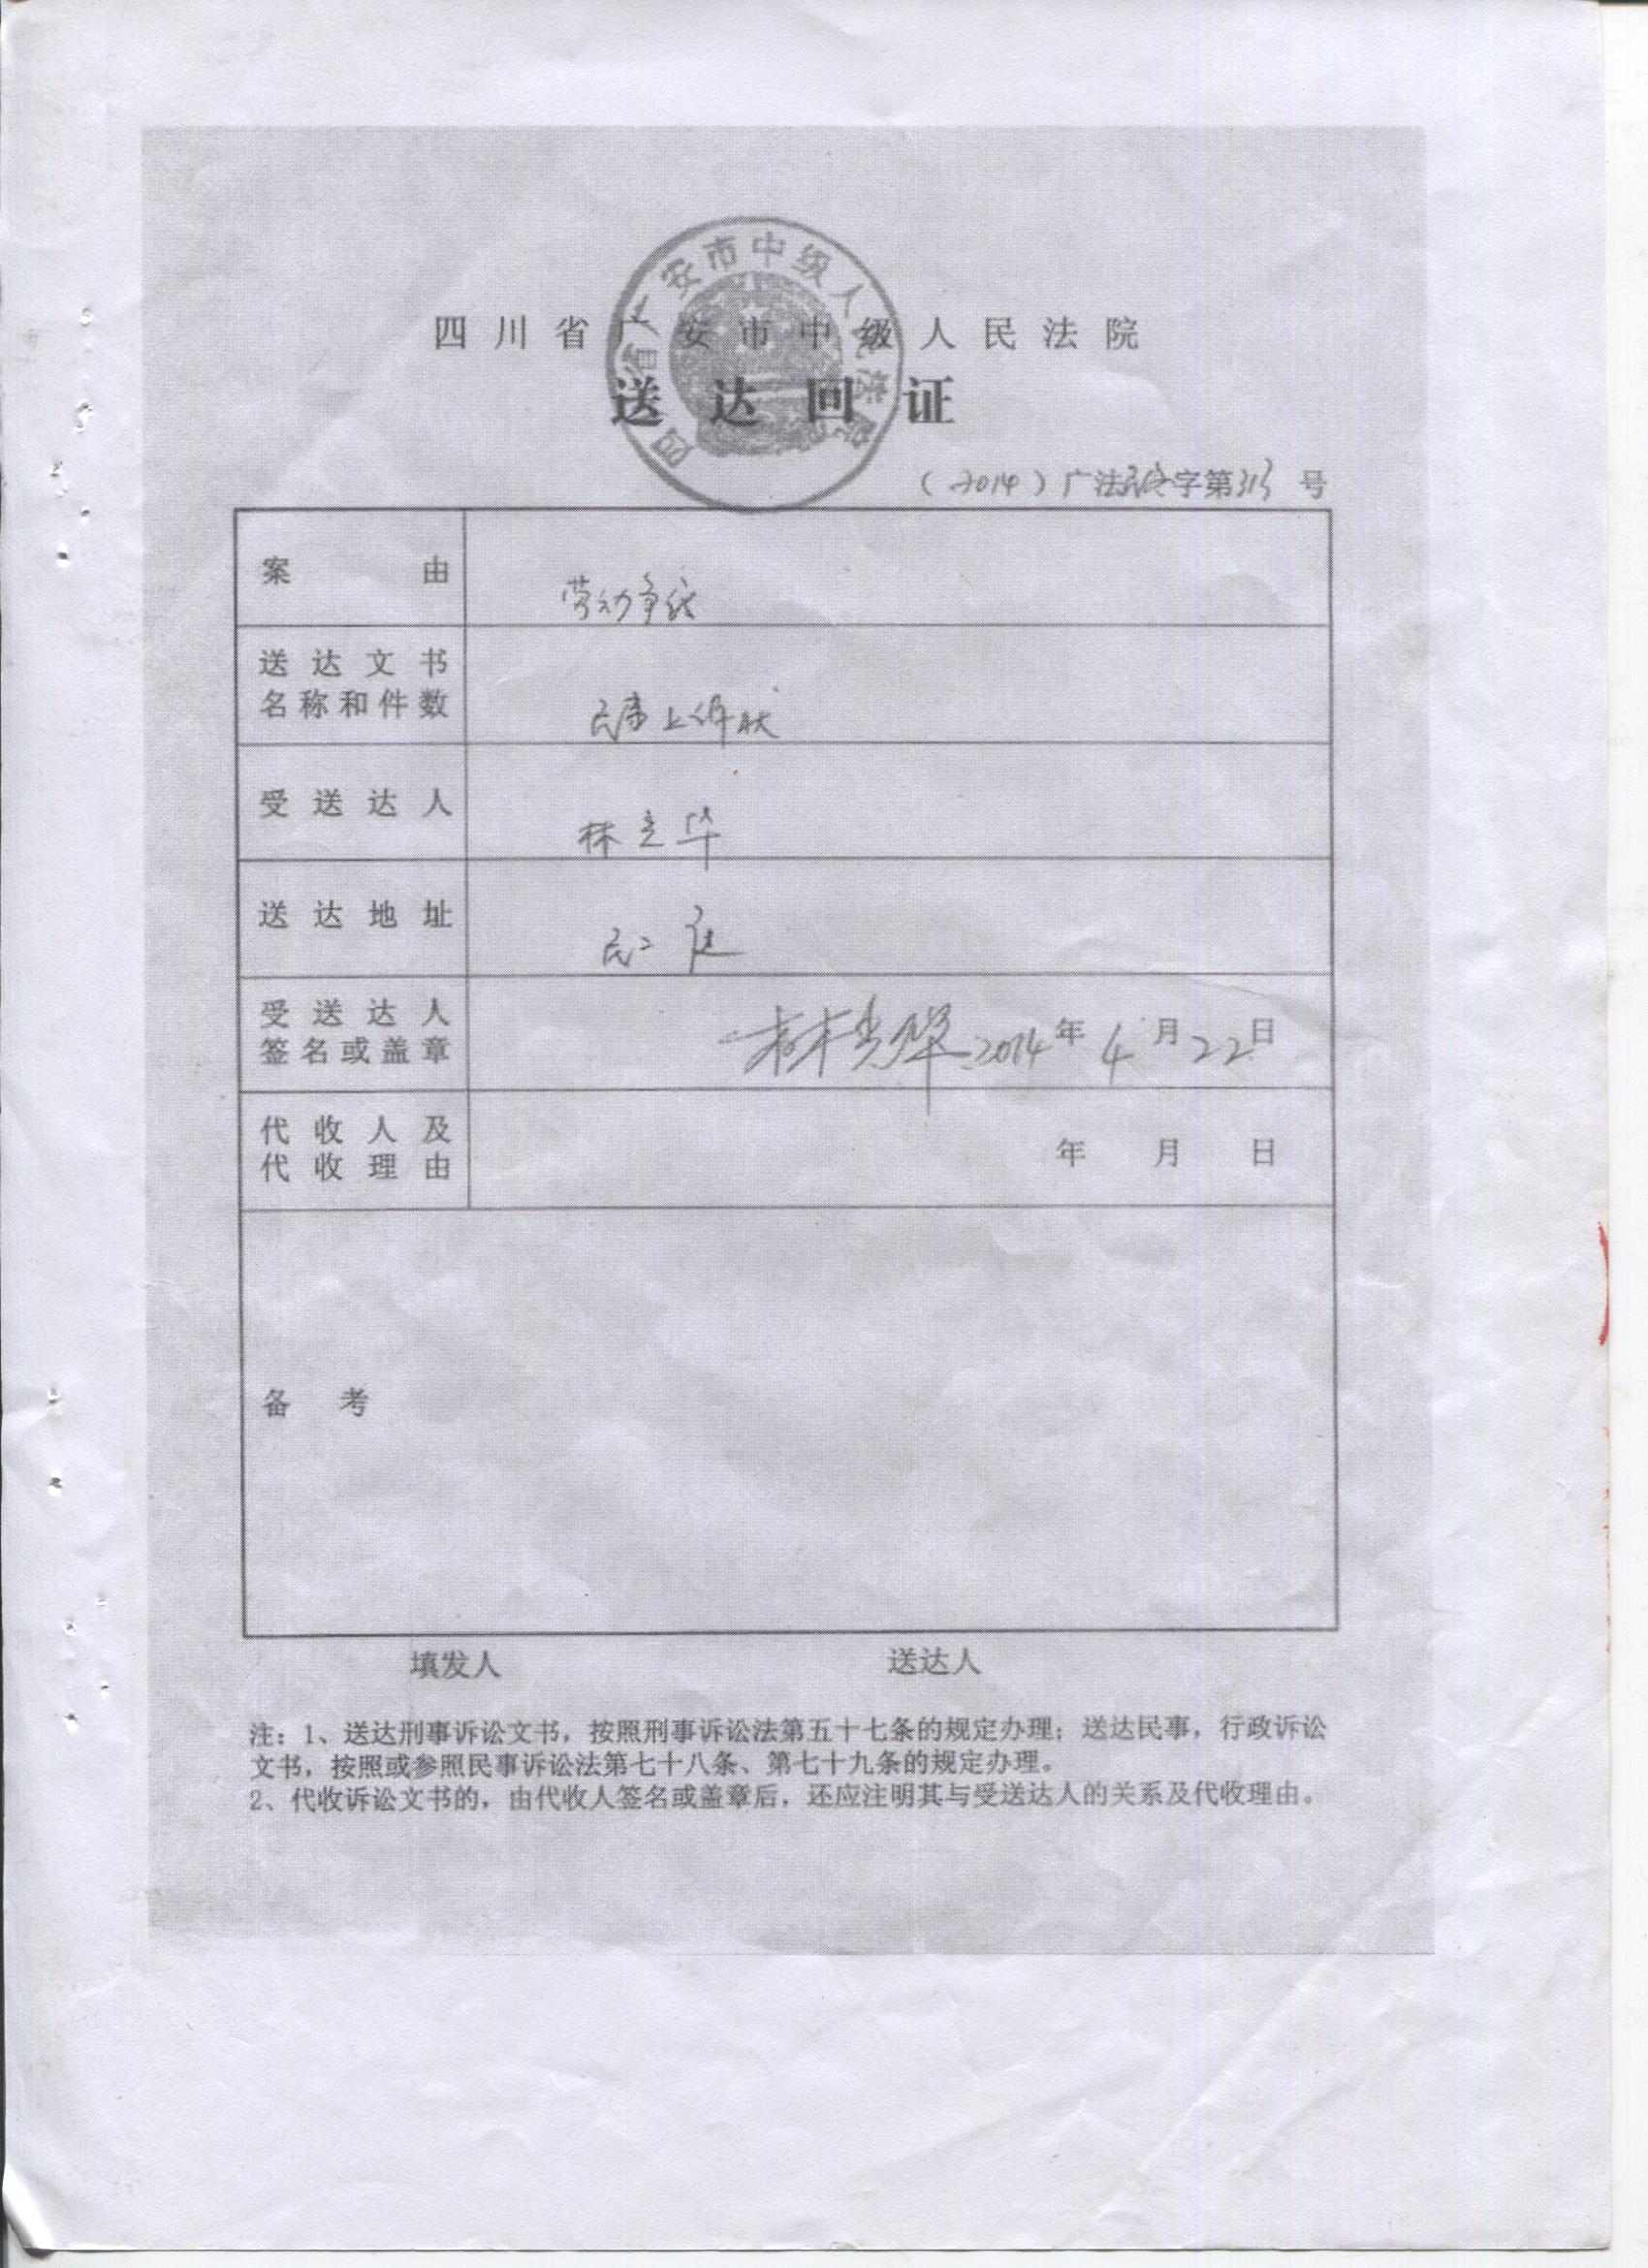 四川省广安市中级人民法院
四川省广安市中级人民法院
送达回证
（2014）广法民终字第313号
案由
劳动争议
送达文书
名称和件数
民事上诉状
受送达人
林立华
送达地址
民二庭
受送达人
签名或盖章
2014年4月22日
代收人及
代收理由
年 月 日
备考
填发人 送达人
注：1、送达刑事诉讼文书，按照刑事诉讼法第五十七条的规定办理；送达民事，行政诉讼
文书，按照或参照民事诉讼法第七十八条、第七十九条的规定办理。
2、代收诉讼文书的，由代收人签名或盖章后，还应注明其与受送达人的关系及代收理由。